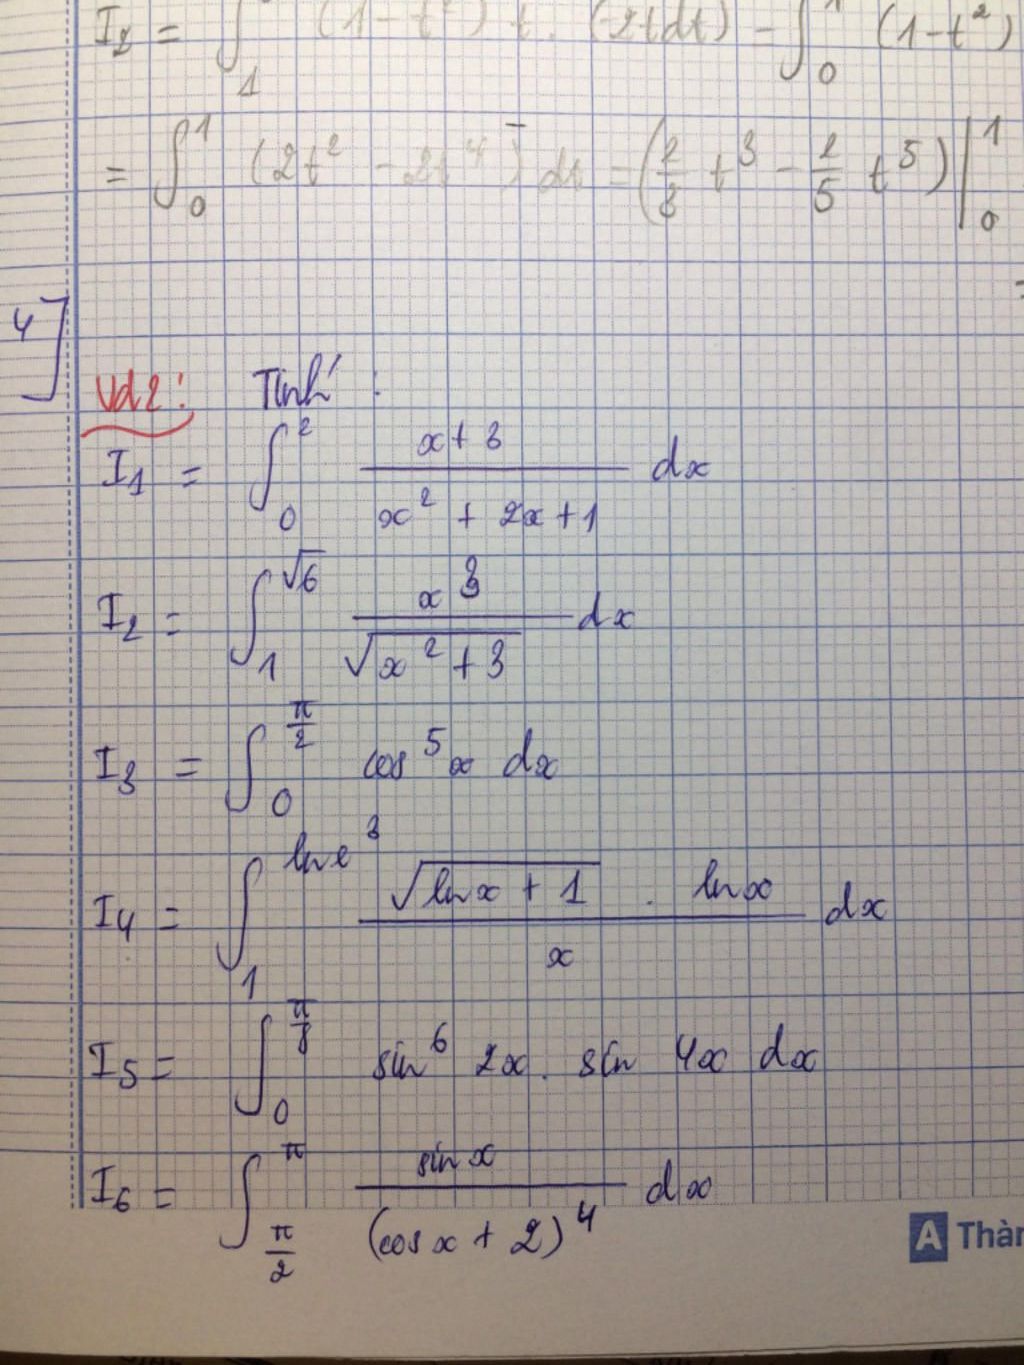 I₂ = ∫₁ (1-t²) t. (-2tdt) = ∫₀¹ (1-t²)
= ∫₀¹ (2t² - 2t⁴) dt = (2/3 t³ - 2/5 t⁵) |₀¹
4]
Vd2: Tính :
I₁ = ∫₀² (x+3)/(x² + 2x+1) dx
I₂ = ∫₁^√6 x³/√(x²+3) dx
I₃ = ∫₀^(π/2) cos⁵x dx
I₄ = ∫₁^(ln e³) (√(lnx + 1) . lnx)/x dx
I₅ = ∫₀^(π/8) sin⁶ 2x. sin 4x dx
I₆ = ∫_(π/2)^π sin x/(cos x + 2)⁴ dx
A Thàn